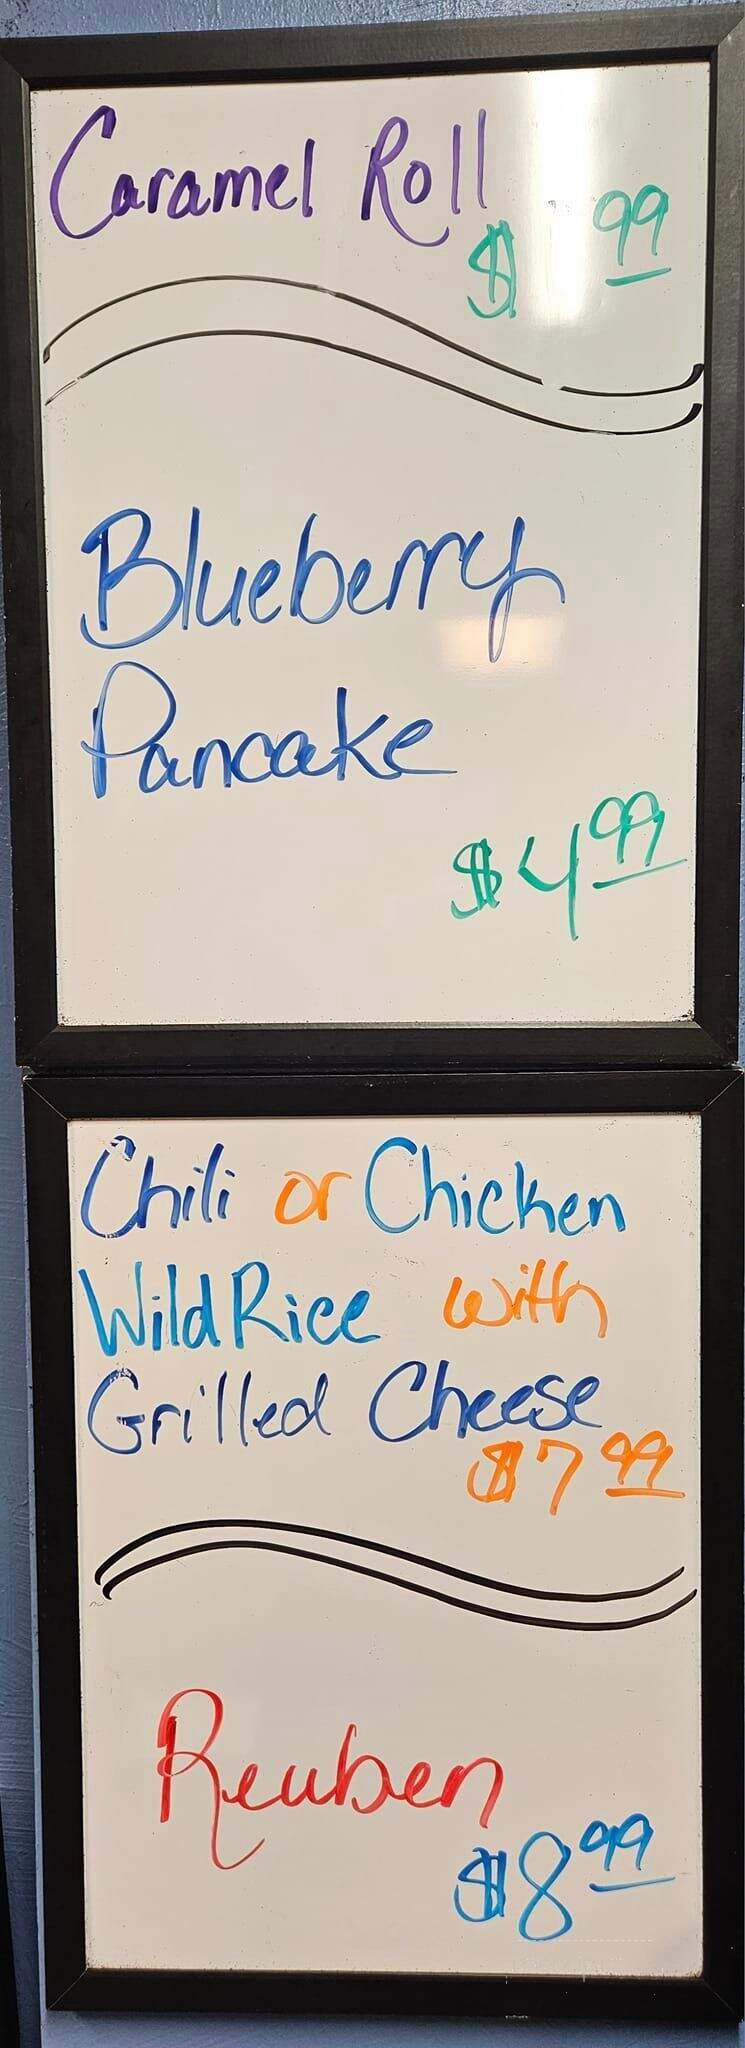 Caramel Roll
$ 99
Blueberry
Pancake
$4 99
Chili or Chicken
Wild Rice with
Grilled Cheese
$7 99
Reuben
$8 99